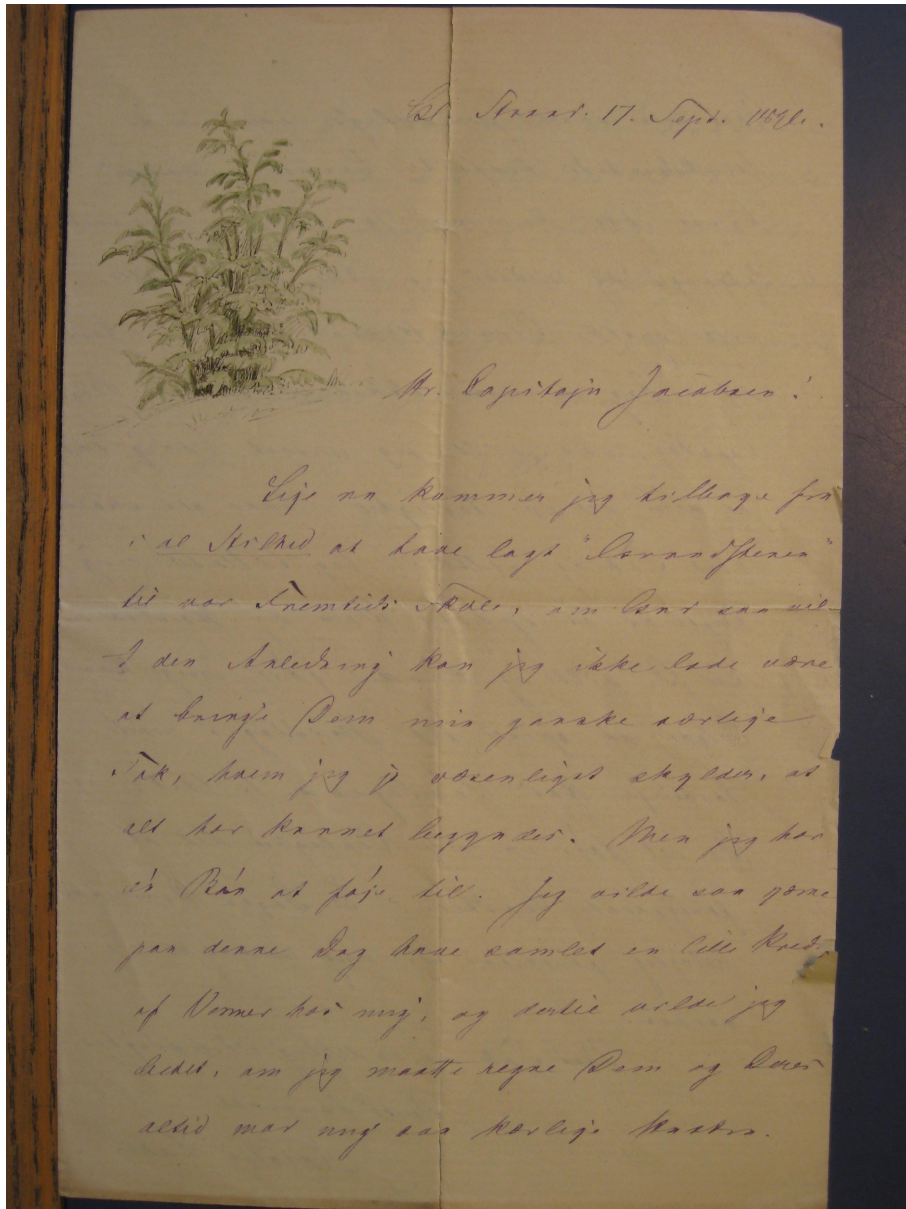 17. Sept.
Hr. Capitajn Jacobsen!
Lige nu kommer jeg tilbage fra
i al Stilhed at have lagt "Grundstenen"
til vor Fremtids Skole, om Gud saa vil.
I den Anledning kan jeg ikke lade være
at bringe Dem min ganske særlige
Tak, hvem jeg jo væsenligst skylder, at
alt har kunnet begyndes. Men jeg har
én Bøn at føje til. Jeg vilde saa gærne
paa denne Dag have samlet en lille Kreds
af Venner hos mig, og dertil vilde jeg
bedet, om jeg maatte regne Dem og Deres
altid mod mig saa kærlige Hustru.